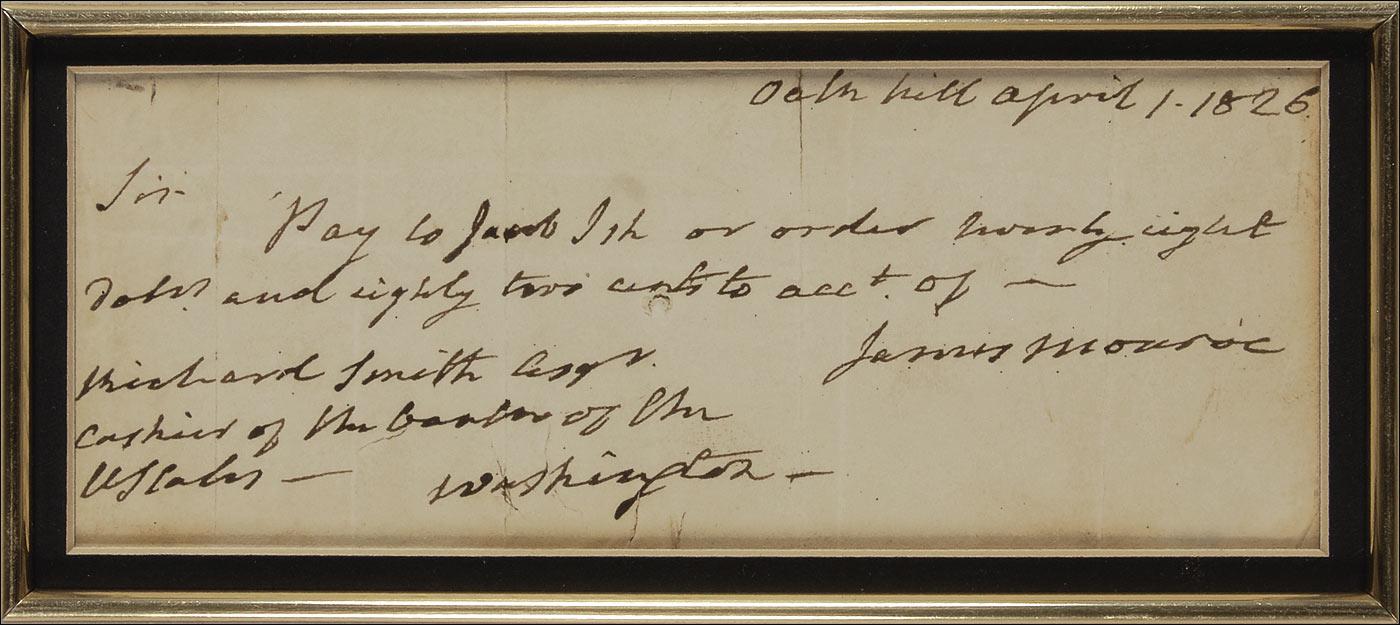 Oak hill April 1. 1826.
Sir
Pay to Jacob Ish or order twenty eight
Dolrs and eighty two cents to acct. of —
James Monroe
Richard Smith Esqr.
Cashier of the bank of the
UStates — Washington —